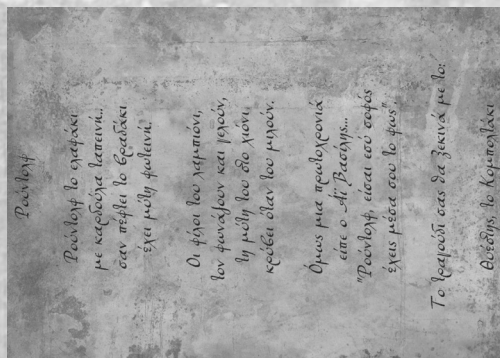 Ρούντολφ
Ρούντολφ το ελαφάκι
με καρδούλα ταπεινή..
σαν πέφτει το βραδάκι
έχει μύτη φωτεινή.
Οι φίλοι του λαμπιόνι,
τον φωνάζουν και γελούν,
τη μύτη του στο χιόνι
κρύβει όταν του μιλούν.
Όμως μια πρωτοχρονιά
είπε ο Αϊ Βασίλης...
"Ρούντολφ, είσαι εσύ σοφός
έχεις μέσα σου το φως".
Το τραγούδι σας θα ξεκινά με το:
το Κομποστάκι